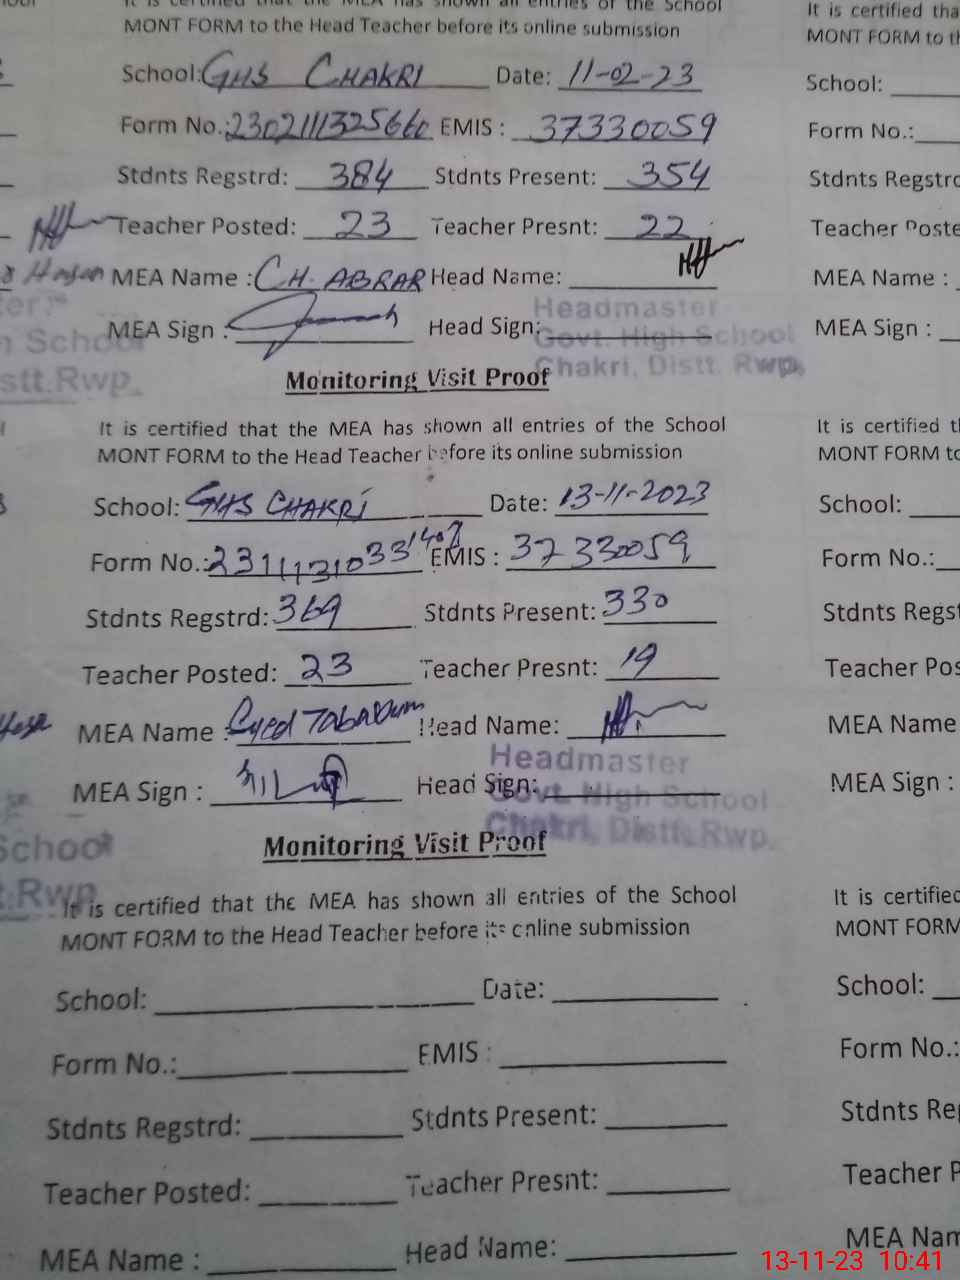 It is certified that the MEA has shown all entries of the School
MONT FORM to the Head Teacher before its online submission
School: GHS CHAKRI Date: 11-02-23
Form No.: EMIS : 37330059
Stdnts Regstrd: 384 Stdnts Present: 354
Teacher Posted: 23 Teacher Presnt: 22
MEA Name : CH. ABRAR Head Name:
MEA Sign : Head Sign:
Headmaster
Govt. High School
Chakri, Distt. Rwp.
Monitoring Visit Proof
It is certified that the MEA has shown all entries of the School
MONT FORM to the Head Teacher before its online submission
School: GHS CHAKRI Date: 13-11-2023
Form No.: EMIS : 37330059
Stdnts Regstrd: 369 Stdnts Present: 330
Teacher Posted: 23 Teacher Presnt: 19
MEA Name : Syed Head Name:
MEA Sign : Head Sign:
Headmaster
Govt. High School
Chakri, Distt. Rwp.
Monitoring Visit Proof
It is certified that the MEA has shown all entries of the School
MONT FORM to the Head Teacher before its online submission
School: Date:
Form No.: EMIS :
Stdnts Regstrd: Stdnts Present:
Teacher Posted: Teacher Presnt:
MEA Name : Head Name:
School
stt.Rwp.
School
t.Rwp.
It is certified tha
MONT FORM to th
School:
Form No.:
Stdnts Regstrd
Teacher Poste
MEA Name :
MEA Sign :
It is certified th
MONT FORM to
School:
Form No.:
Stdnts Regst
Teacher Pos
MEA Name
MEA Sign :
It is certified
MONT FORM
School:
Form No.:
Stdnts Reg
Teacher P
MEA Nam
13-11-23 10:41